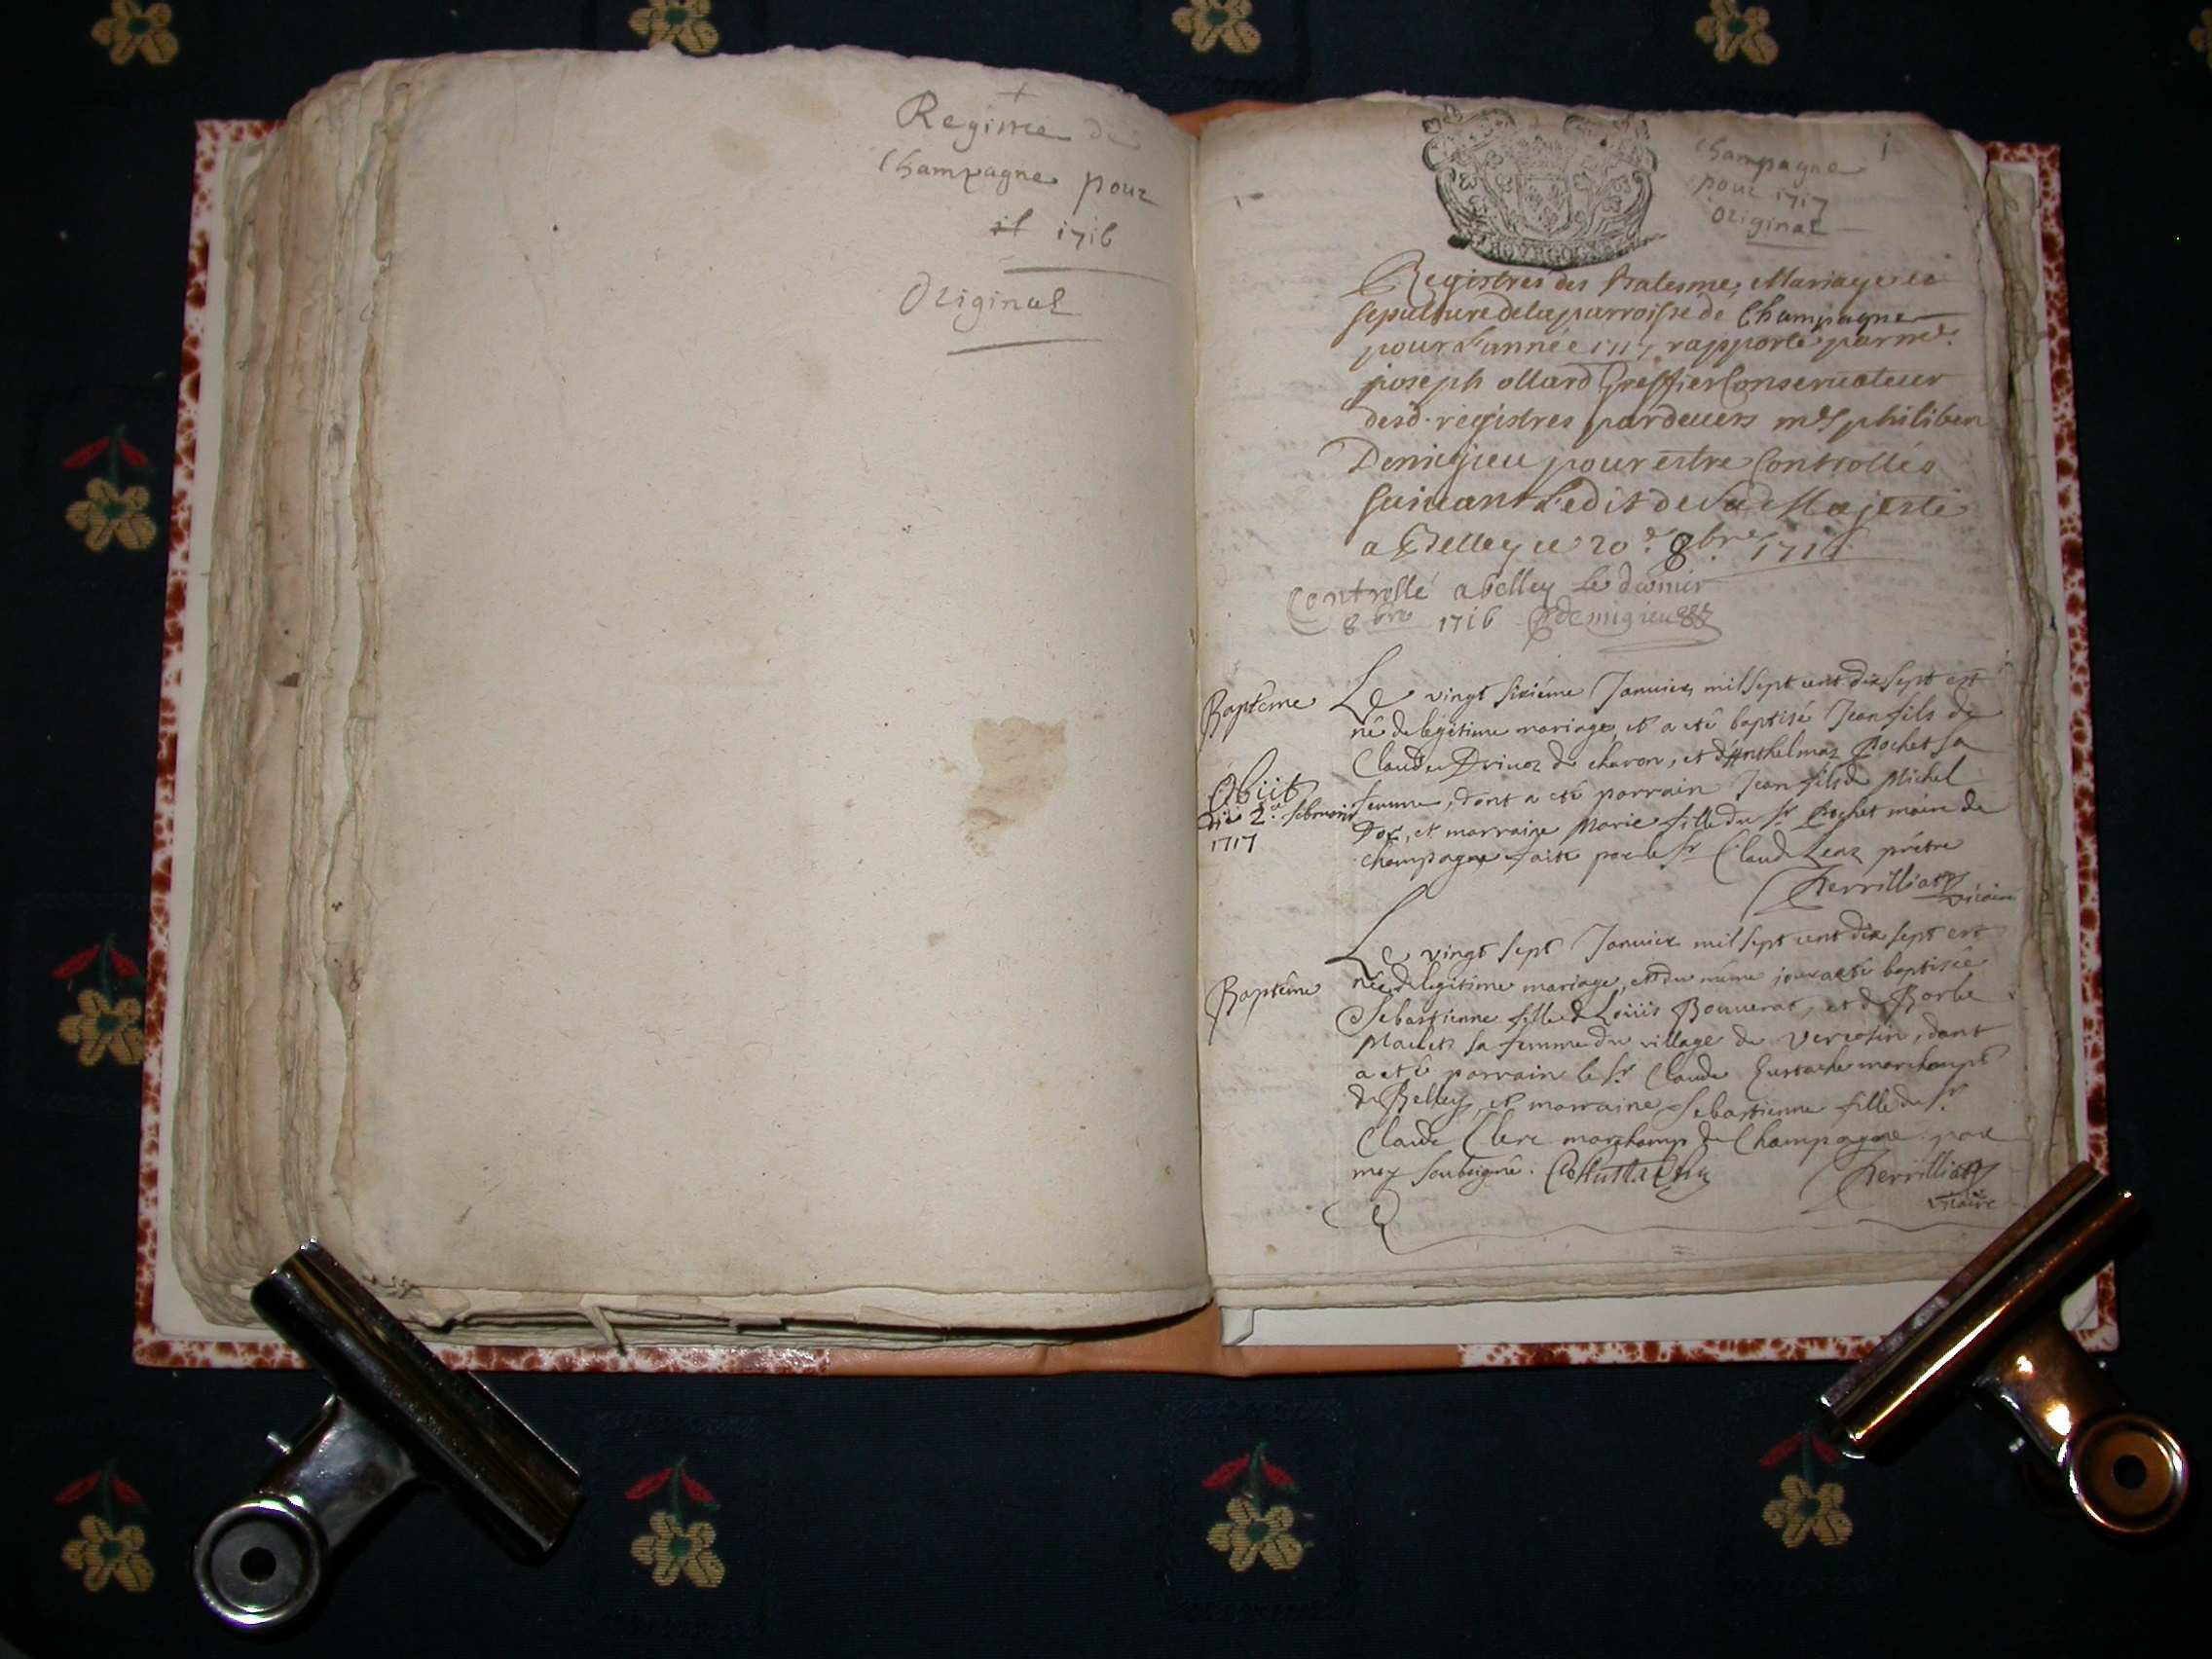 Registre de
Champagne pour
1716
Original
Champagne
pour 1717
Original
1
Registres des Batesme, Mariage et
sepulture de la parroisse de Champagne
pour L'année 1717 rapporté par me.
joseph ollard Greffier Conservateur
desd. registres pardevers
Demigieu pour estre Controllés
suivant L'edit de Sa Majesté
a Belley ce 20e 8bre 1716
Controllé a belley le dernier
8bre 1716 demigieu
Baptême
Le vingt sixiéme Janvier mil sept cent dix sept est
né de legitime mariage, et a eté baptisé Jean fils de
Claude de charon, et d'Anthelmaz Pochet sa
Obiit
die 2a februarii
1717
femme, dont a eté parrain Jean fils de Michel
et marraine Marie fille du Sr Pochet maire de
Champagne fait par le Sr Claude prétre
Perrilliat
vicaire
Baptême
Le vingt sept Janvier mil sept cent dix sept est
née de legitime mariage, et du même jour a eté baptisée
Sebastienne fille de Loüis Bouverat, et de Barbe
sa femme du village de Vercosin, dont
a eté parrain le Sr Claude Eustache marchant
de Belley, et marraine Sebastienne fille du Sr
Claude Clerc marchamp de Champagne par
moy soubsigné. Eustache
Perrilliat
vicaire